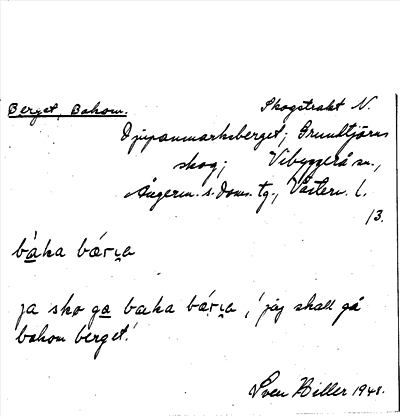 Berget, Bakom. Skogstrakt N.
Djupanmarksberget; Grundtjärns
skog; Vibyggerå sn.,
Ångerm. s. doms. tg., Västern. l.
13.
bàka bárɩa
ja sko ga baka bárɩa, 'jag skall gå
bakom berget'.
Sven Hiller 1948.